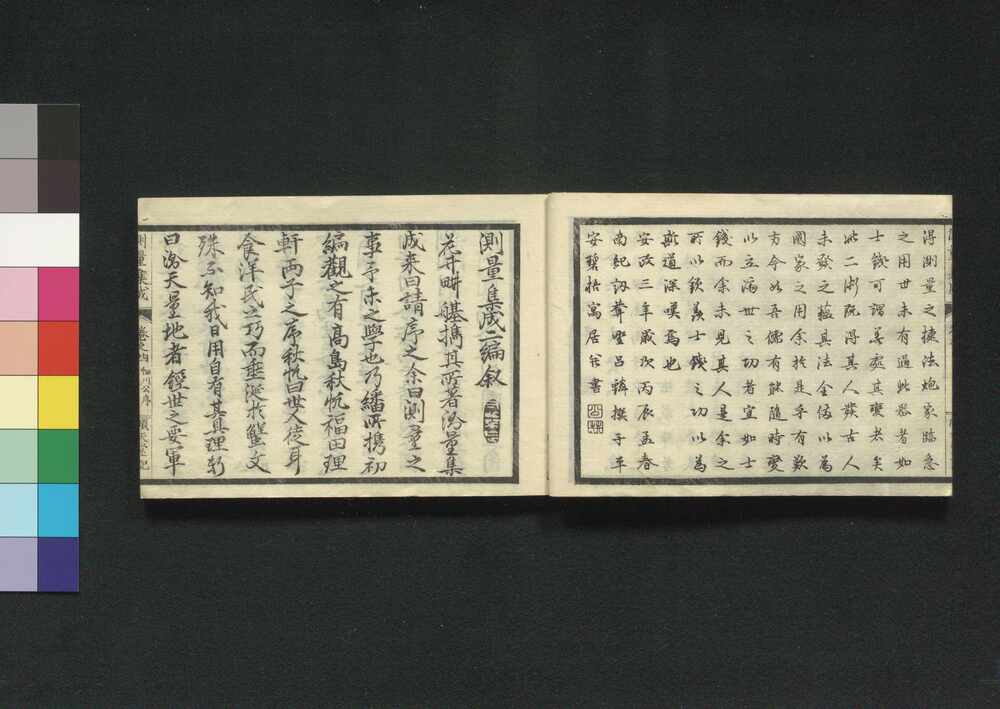 得測量之捷法炮家臨急
之用世未有過此器者如
士錢可謂善處其變者矣
此二術既得其人發古人
未發之蘊其法全備以為
國家之用余於是乎有歎
方今如吾儒有能隨時變
以立濟世之功者宜如士
錢而余未見其人是余之
所以欽羨士錢之功以為
斯道深嘆焉也
安政三年歲次丙辰孟春
南紀
撰于平
安碧梧寓居并書
測量集成二編叙
花井畊雄携其所著測量集
成来曰請序之余曰測量之
事予未之學也乃繙所携初
編觀之有高島秋帆福田理
軒両子之序秋帆曰世人徒耳
食洋氏之巧而垂涎於蟹文
殊不知我日用自有其真理
曰測天量地者經世之要軍
測量集成